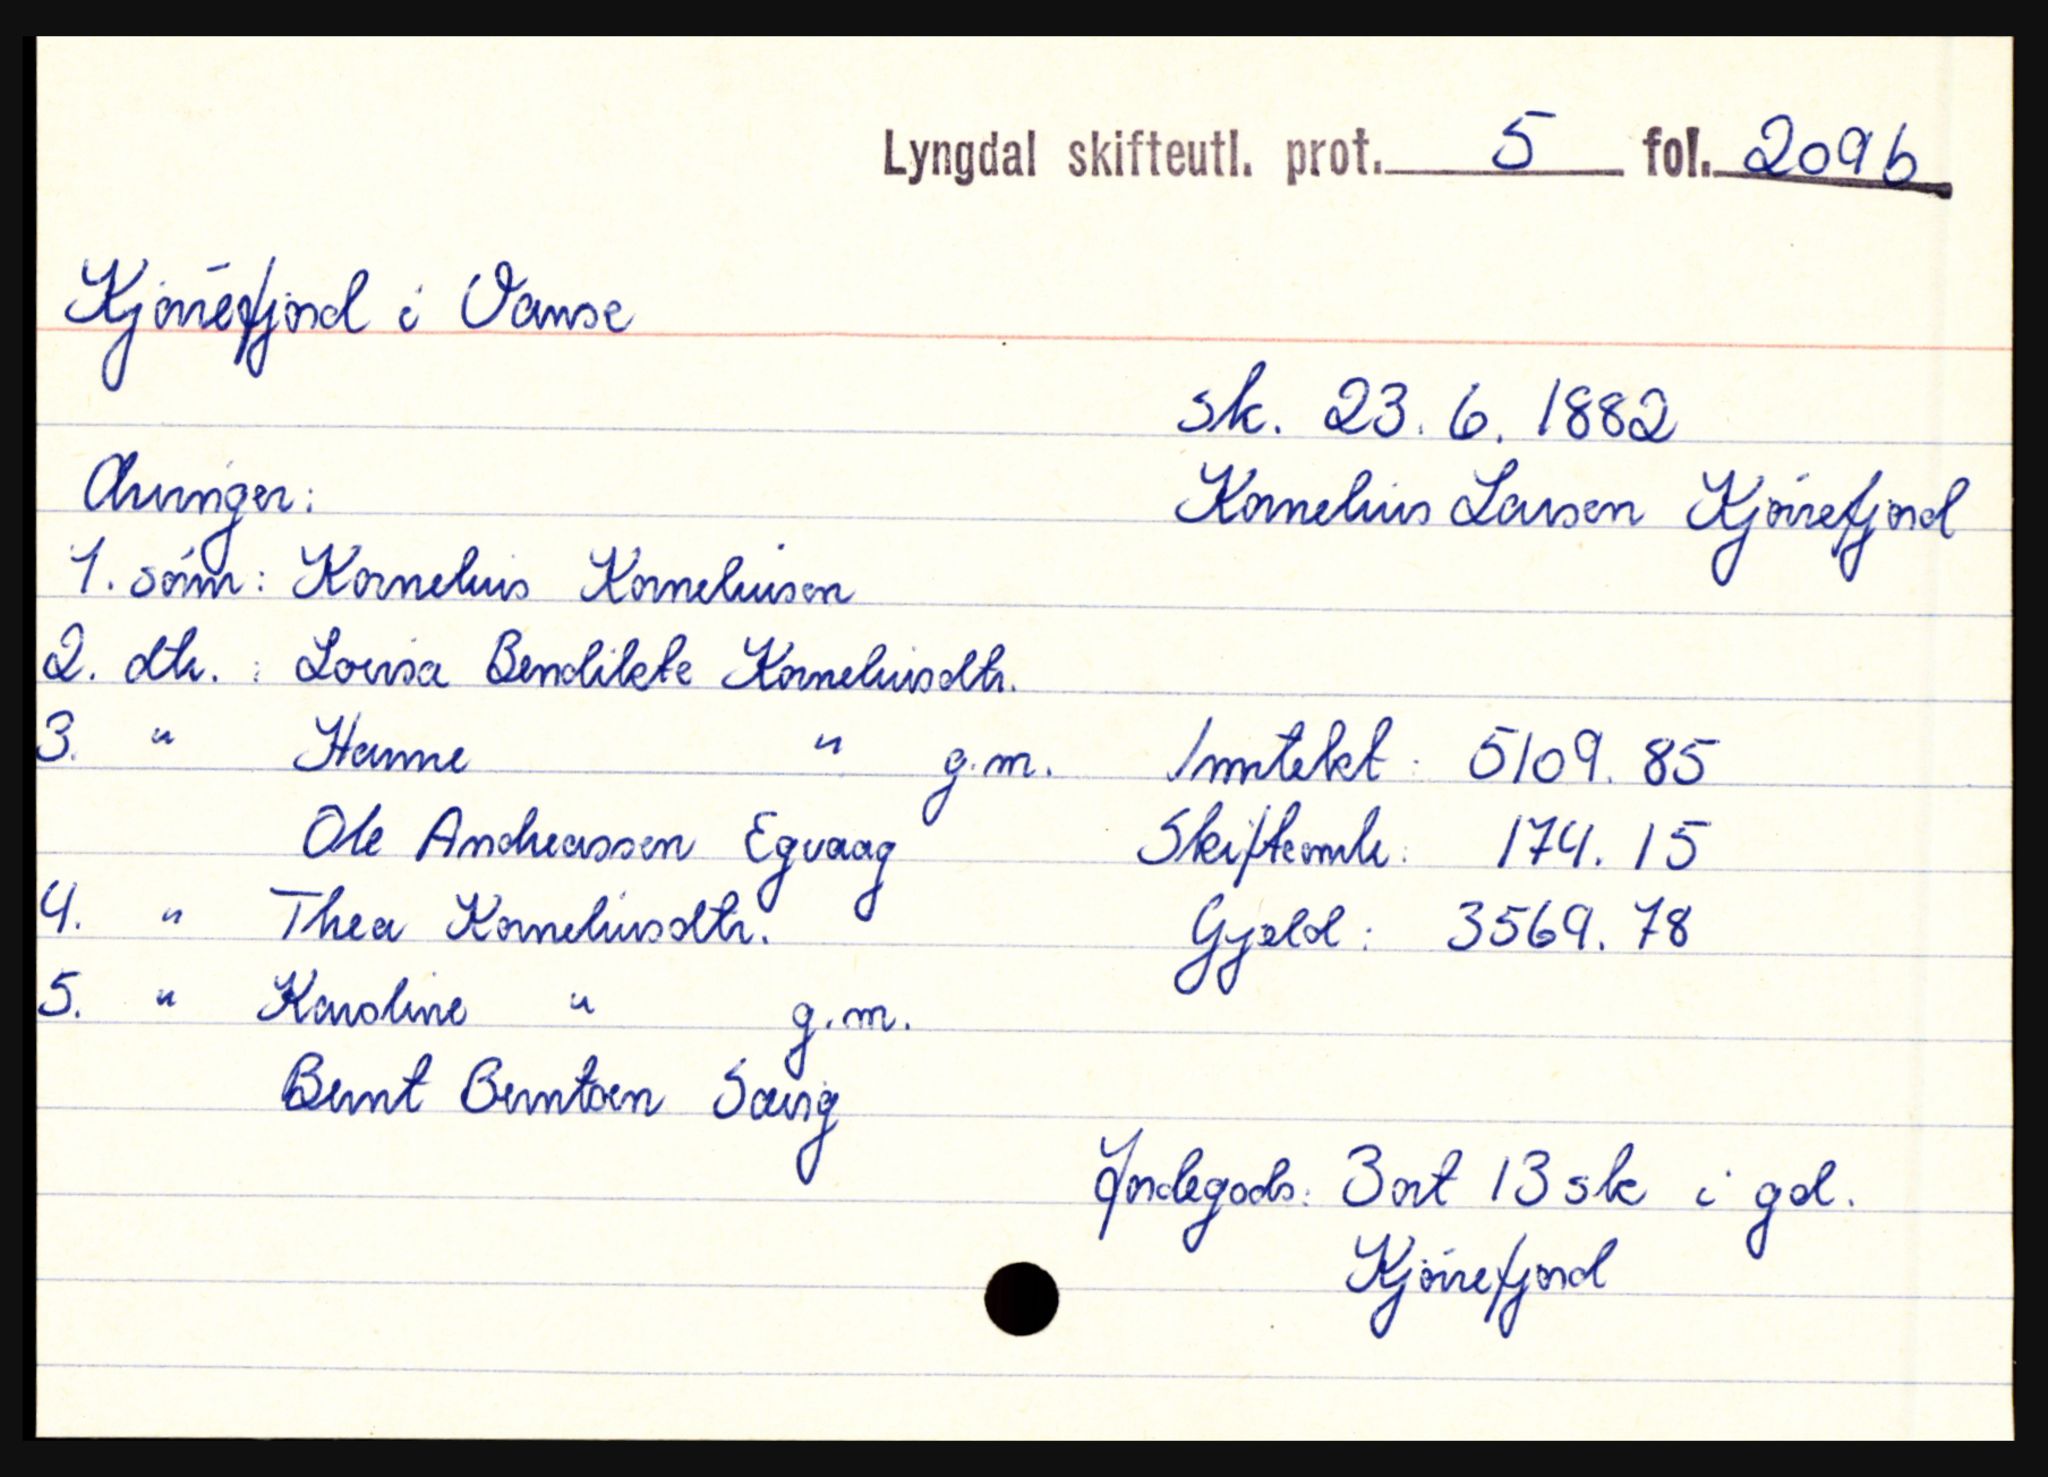 Lyngdal skifteutl. prot. 5 fol. 209b
Kjørrefjord i Vanse
sk. 23.6.1882
Kornelius Larsen Kjørrefjord
Arvinger:
1. sønn: Kornelius Korneliusen
2. dtr. : Lovisa Bendikte Korneliusdtr.
3. " Hanne " g.m.
Ole Andreassen Egvaag
4. " Thea Korneliusdtr.
5. " Karoline " g.m.
Bernt Berntsen Særig
Inntekt : 5109. 85
Skifteomk : 174. 15
Gjæld : 3569. 78
Jordegods: 3 ort 13 sk i gd.
Kjørrefjord